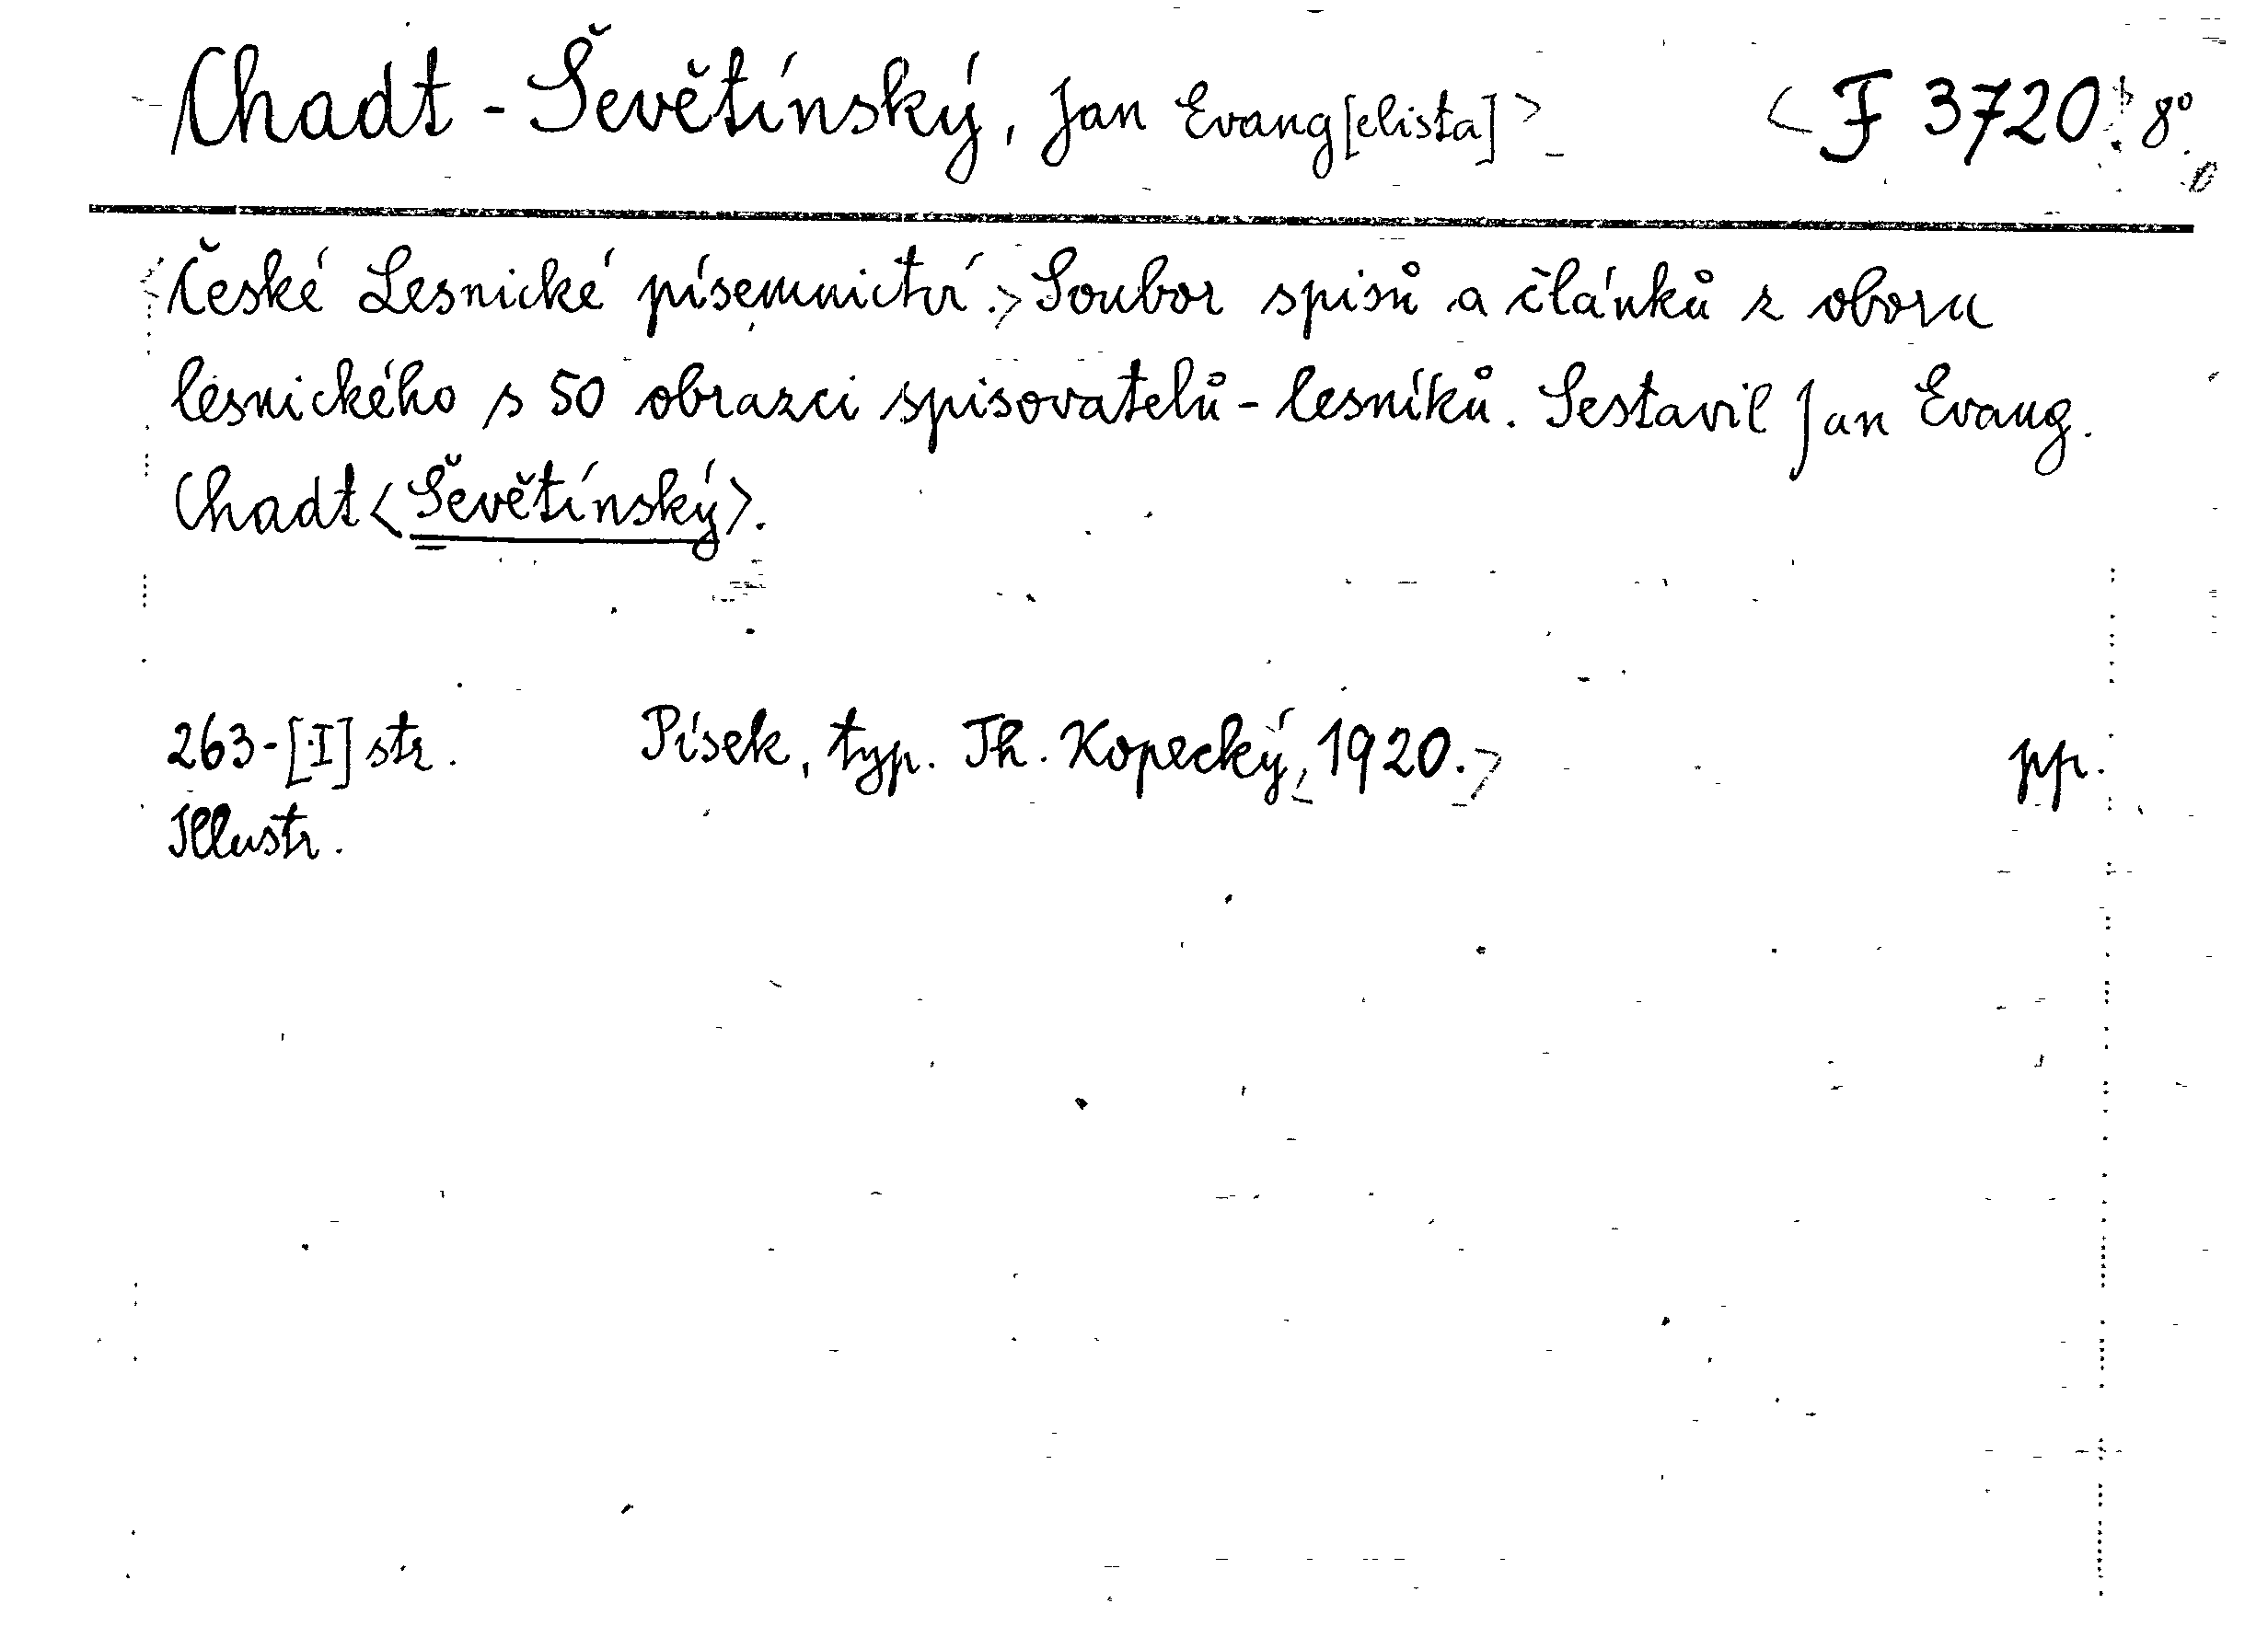 Chadt - Ševětínský, Jan Evang[elista] > < F 3720. 8°
České Lesnické písemnictví.> Soubor spisů a článků z oboru
lesnického s 50 obrazci spisovatelů - lesníků. Sestavil Jan Evang.
Chadt <Ševětínský>.
263-[I] str. Písek, typ. Th. Kopecký, 1920.> pp.
Illustr.